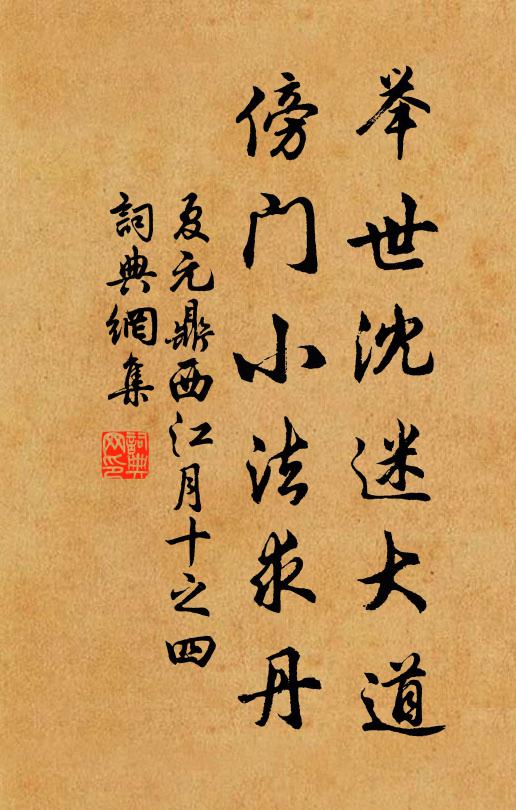 举世沈迷大道
傍门小法求丹
夏元鼎西江月十之四
詞典網集
詞典網印